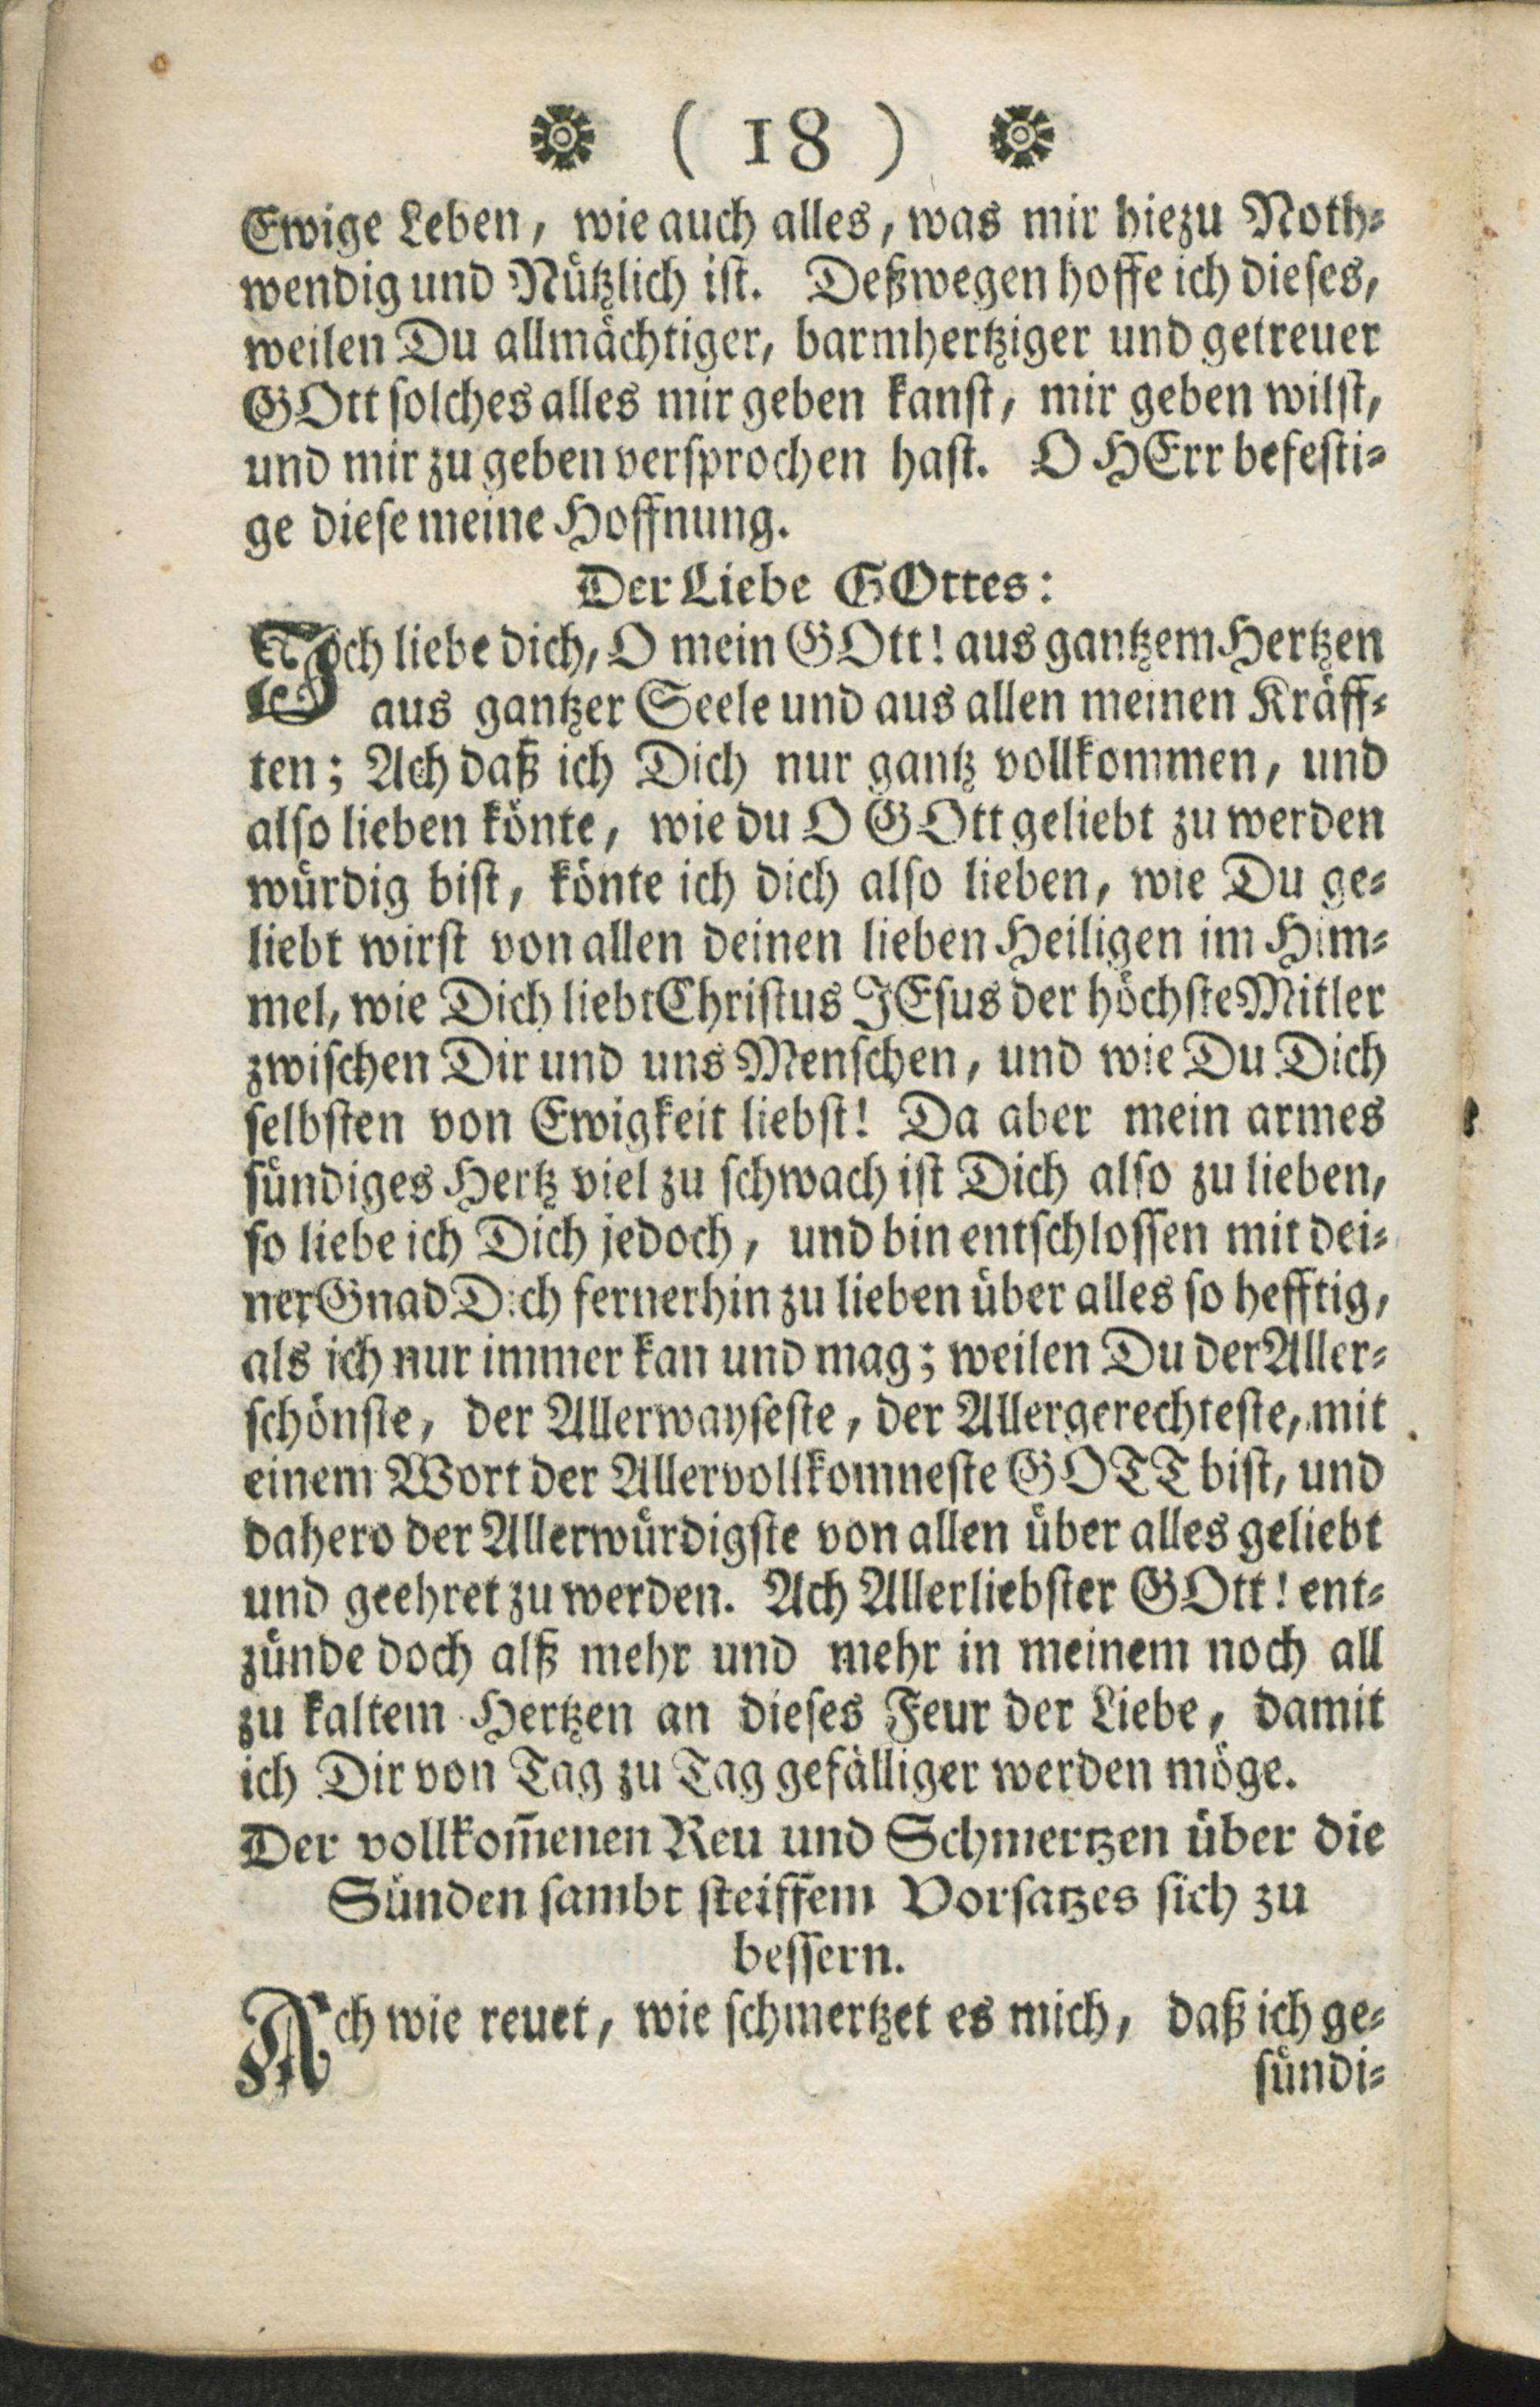 ( 18 )
Ewige Leben, wie auch alles, was mir hiezu Noth-
wendig und Nützlich ist. Deßwegen hoffe ich dieses,
weilen Du allmächtiger, barmhertziger und getreuer
GOtt solches alles mir geben kanst, mir geben wilst,
und mir zu geben versprochen hast. O HErr befesti-
ge diese meine Hoffnung.
Der Liebe GOttes:
Jch liebe dich, O mein GOtt! aus gantzem Hertzen
aus gantzer Seele und aus allen meinen Kräff-
ten; Ach daß ich Dich nur gantz vollkommen, und
also lieben könte, wie du O GOtt geliebt zu werden
würdig bist, könte ich dich also lieben, wie Du ge-
liebt wirst von allen deinen lieben Heiligen im Him-
mel, wie Dich liebt Christus JEsus der höchste Mitler
zwischen Dir und uns Menschen, und wie Du Dich
selbsten von Ewigkeit liebst! Da aber mein armes
sündiges Hertz viel zu schwach ist Dich also zu lieben,
so liebe ich Dich jedoch, und bin entschlossen mit dei-
ner Gnad Dich fernerhin zu lieben über alles so hefftig,
als ich nur immer kan und mag; weilen Du der Aller-
schönste, der Allerwayseste, der Allergerechteste, mit
einem Wort der Allervollkomneste GOTT bist, und
dahero der Allerwürdigste von allen über alles geliebt
und geehret zu werden. Ach Allerliebster GOtt! ent-
zünde doch alß mehr und mehr in meinem noch all
zu kaltem Hertzen an dieses Feur der Liebe, damit
ich Dir von Tag zu Tag gefälliger werden möge.
Der vollkom̅enen Reu und Schmertzen über die
Sünden sambt steiffem Vorsatzes sich zu
bessern.
Ach wie reuet, wie schmertzet es mich, daß ich ge-
sündi-